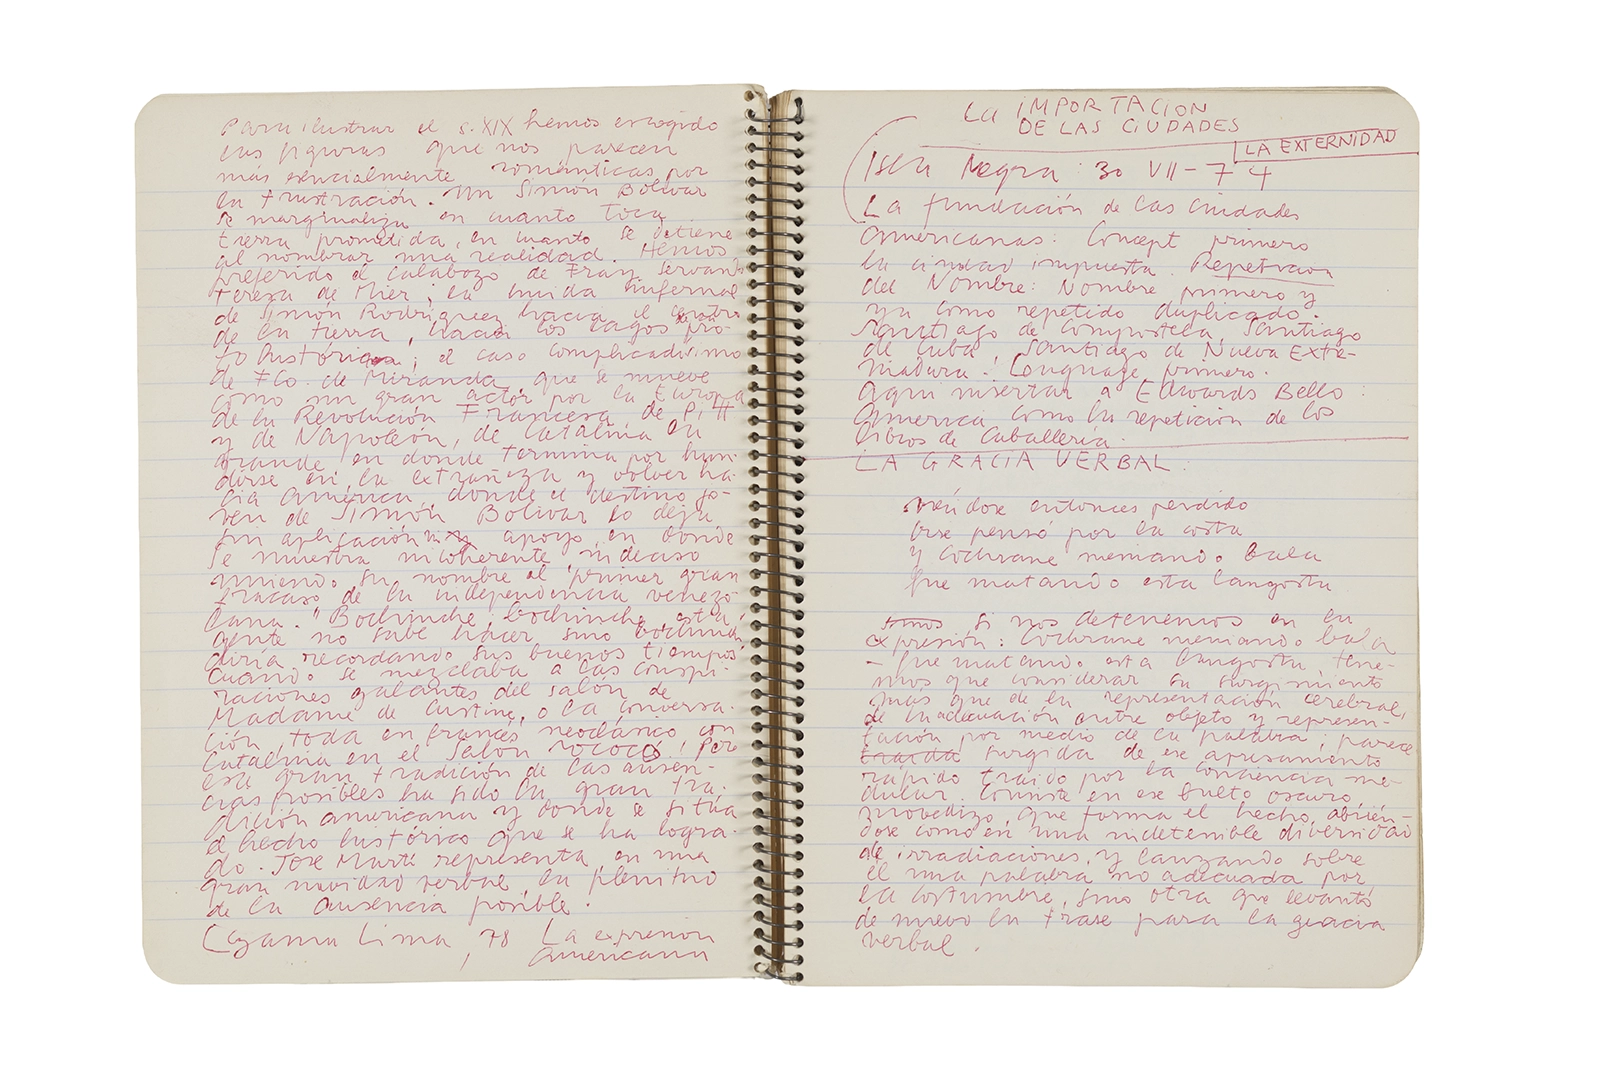 Para ilustrar el s. XIX hemos escogido
las figuras que nos parecen
más esencialmente románticas por
la frustración. Un Simón Bolívar
se marginaliza en cuanto toca
tierra prometida, en cuanto se detiene
al nombrar una realidad. Hemos
preferido el calabozo de Fray Servando
Teresa de Mier; la huida infernal
de Simón Rodríguez hacia el centro
de la tierra, hacia los lagos pro-
; el caso complicadísimo
de Fco. de Miranda, que se mueve
como un gran actor por la Europa
de la Revolución Francesa de Pitt
y de Napoleón, de Catalina la
grande, en donde termina por hun-
dirse en la extrañeza y volver ha-
cia América, donde el destino jo-
ven de Simón Bolívar lo deja
sin aplicación apoyo, en donde
se muestra incoherente, indeciso
uniendo su nombre al primer gran
fracaso de la independencia venezo-
lana. "Bochinche, bochinche, esta
gente no sabe hacer sino bochinche
diría recordando sus buenos tiempos
cuando se mezclaba a las conspi-
raciones galantes del salón de
Madame de Custine, o la conversa-
ción, toda en francés neoclásico con
Catalina en el salón rococó. Pero
esa gran tradición de las ausen-
cias posibles ha sido la gran tra-
dición americana y donde se sitúa
el hecho histórico que se ha logra-
do. José Martí representa, en una
gran navidad verbal, la plenitud
de la ausencia posible.
Lezama Lima, 78 La expresión
americana
LA IMPORTACION
DE LAS CIUDADES
LA EXTERNIDAD
Isla Negra: 30 VII-74
La fundación de las ciudades
americanas: Concept primero
la ciudad impuesta. Repetición
del Nombre: Nombre primero y
ya como repetido duplicado.
Santiago de Compostela, Santiago
de Cuba, Santiago de Nueva Extre-
madura. Language primero.
Aquí insertar a Edwards Bello:
América como la repetición de los
libros de Caballería.
LA GRACIA VERBAL:
viéndose entonces perdido
irse pensó por la costa
y Cochrane meniando bala
fue matando esta langosta
Si nos detenemos en la
expresión: Cochrane meniando bala
- fue matando esta langosta, tene-
mos que considerar su surgimiento
más que de la representación cerebral,
de la adecuación entre objeto y represen-
tación por medio de la palabra; parece
traída surgida de ese apresamiento
rápido traído por la conciencia me-
dular. Consiste en ese bulto oscuro
movedizo, que forma el hecho, abrién-
dose como en una indetenible diversidad
de irradiaciones, y lanzando sobre
él una palabra no adecuada por
la costumbre, sino otra que levantó
de nuevo la frase para la gracia
verbal.